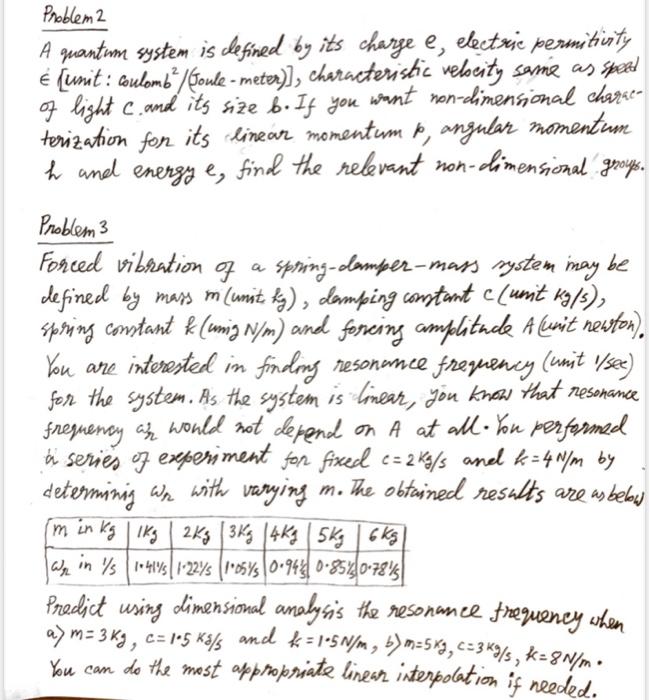 Problem 2
A quantum system is defined by its charge e, electric permitivity
∈ [unit: coulomb²/(Joule-meter)], characteristic velocity same as speed
of light c and its size b. If you want non-dimensional charac-
terization for its linear momentum p, angular momentum
h and energy e, find the relevant non-dimensional groups.
Problem 3
Forced vibration of a spring-damper-mass system may be
defined by mass m (unit kg), damping constant c (unit kg/s),
spring constant k (unig N/m) and forcing amplitude A (unit newton).
You are interested in finding resonance frequency (unit 1/sec)
for the system. As the system is linear, you know that resonance
frequency ωr would not depend on A at all. You performed
a series of experiment for fixed c=2kg/s and k=4N/m by
determinig ωr with varying m. The obtained results are as below
m in Kg | 1Kg | 2Kg | 3Kg | 4Kg | 5Kg | 6Kg
ωr in 1/s | 1.41 1/s | 1.22 1/s | 1.05 1/s | 0.94 1/s | 0.85 1/s | 0.78 1/s
Predict using dimensional analysis the resonance frequency when
a) m=3Kg, c=1.5 Kg/s and k=1.5N/m, b) m=5Kg, c=3Kg/s, k=8N/m.
You can do the most appropriate linear interpolation if needed.